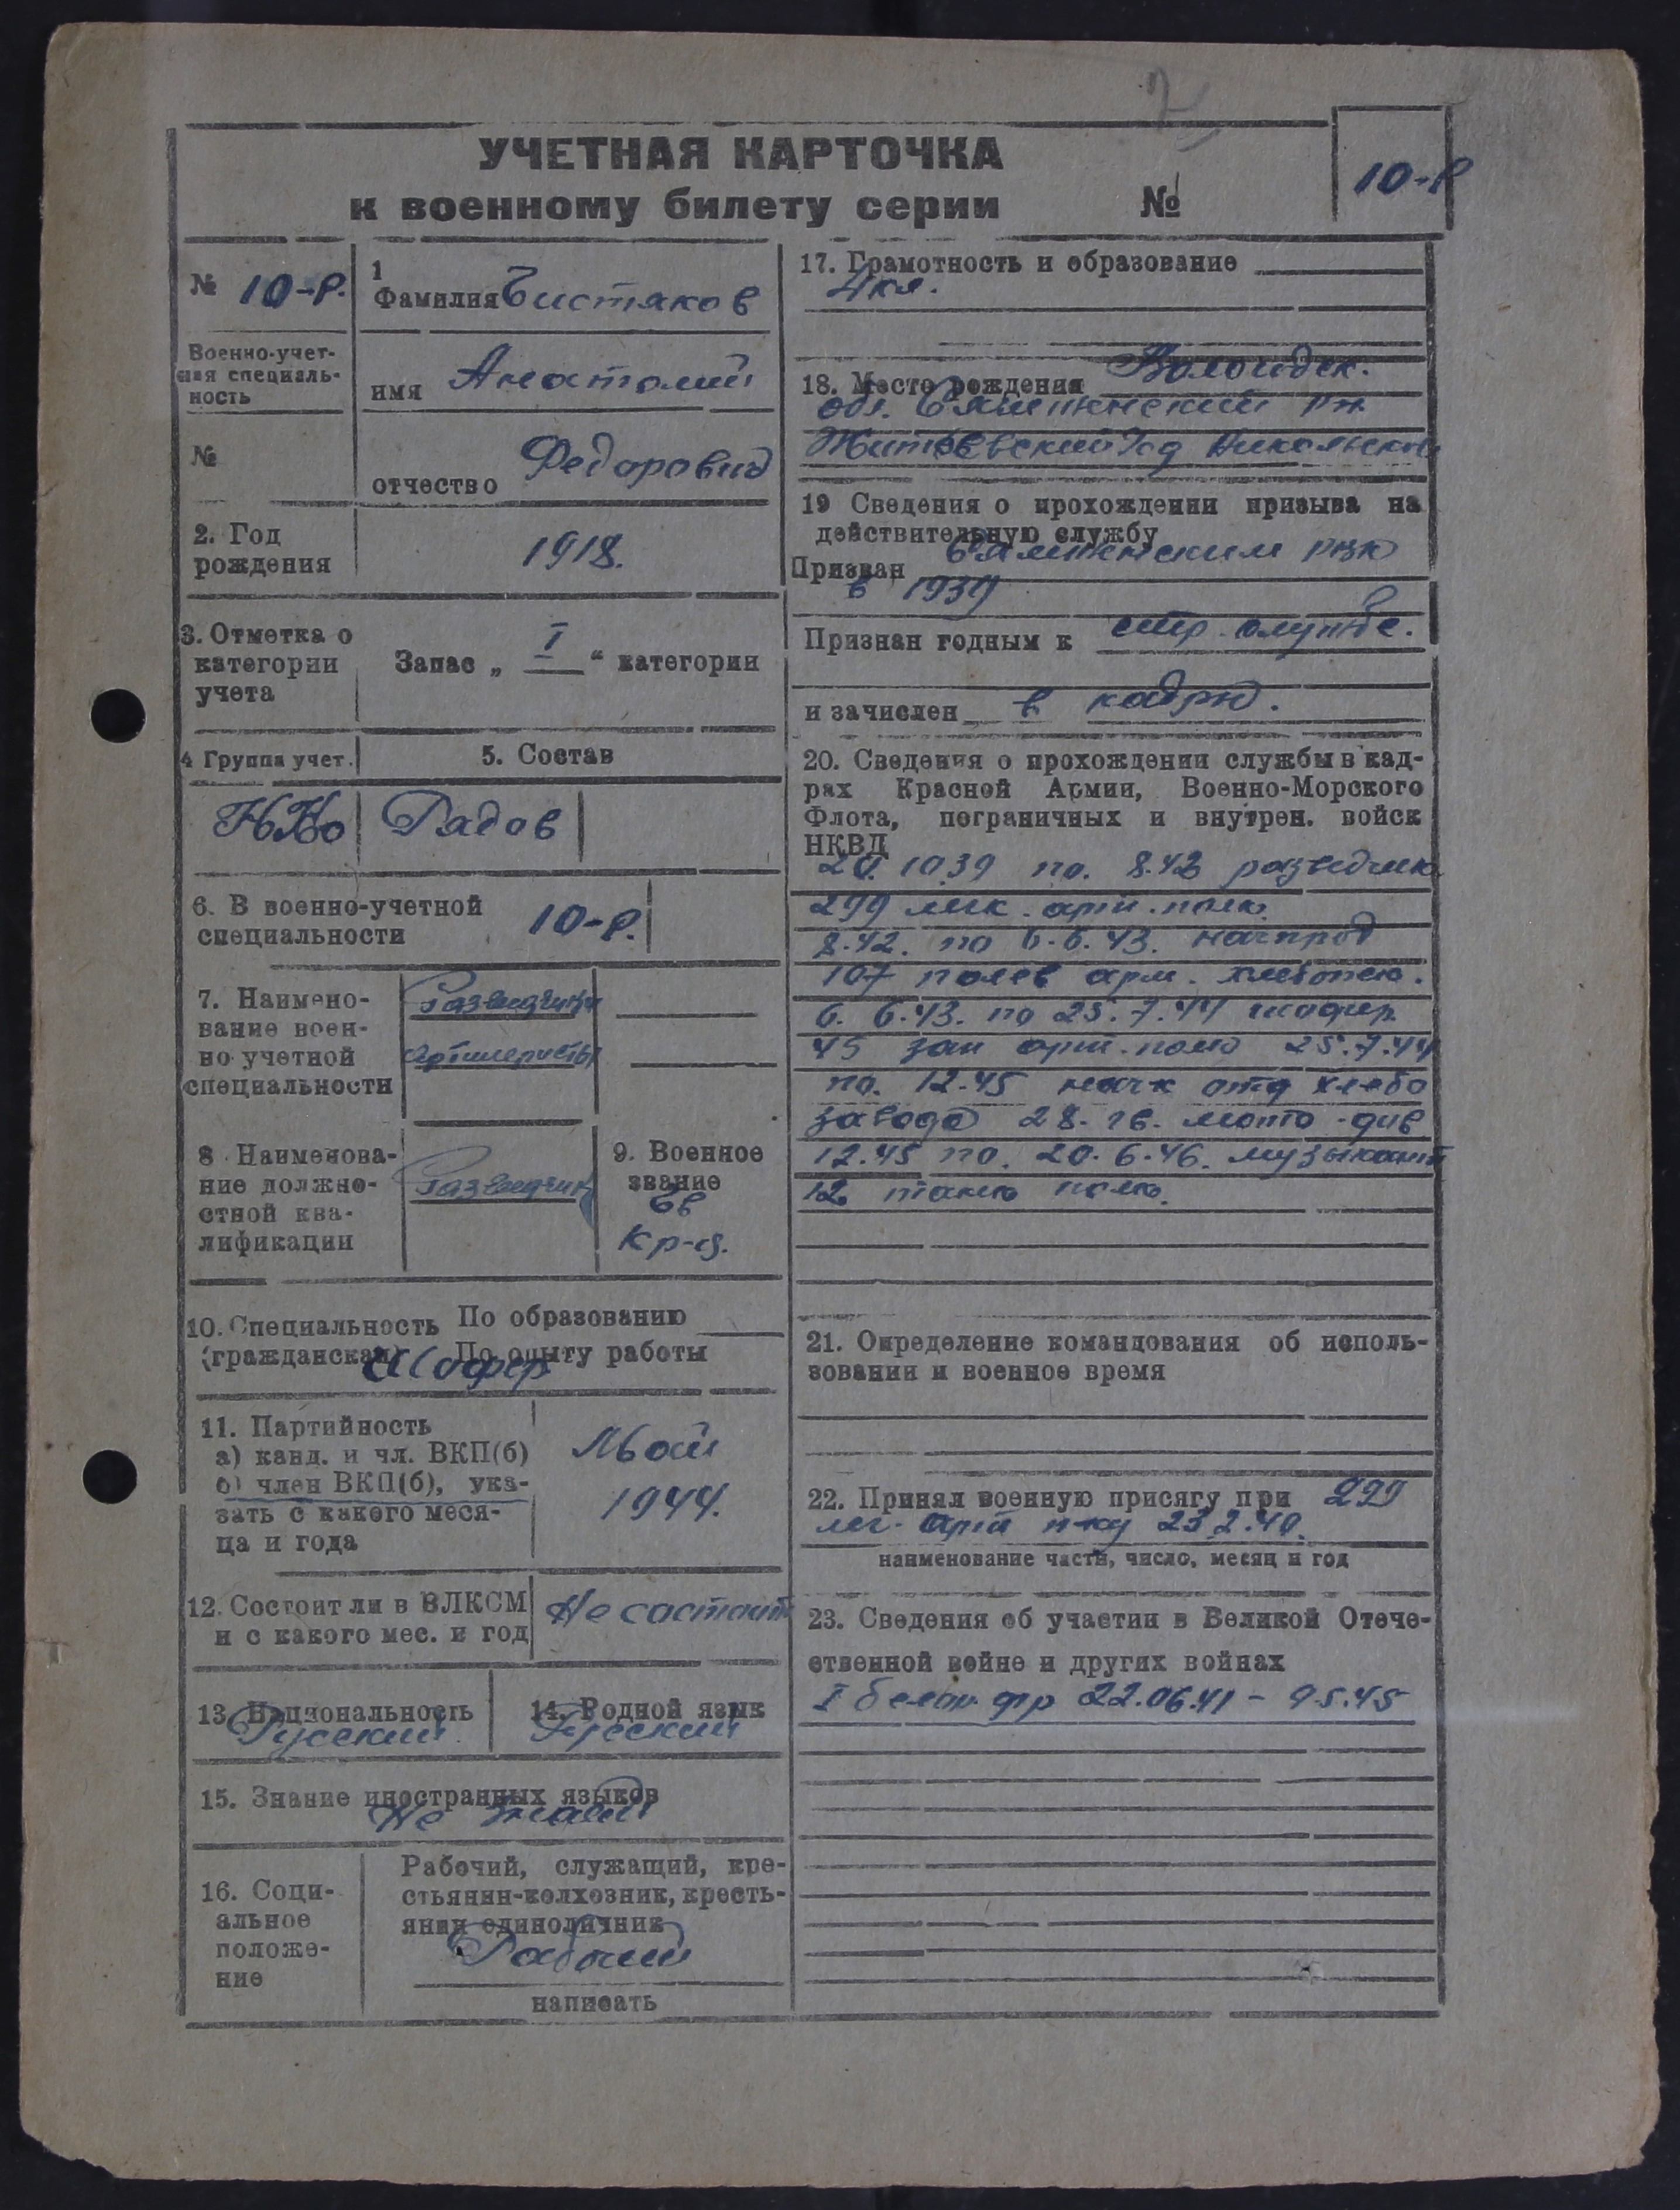 УЧЕТНАЯ КАРТОЧКА
к военному билету серии №
10-Р
№ 10-Р.
Военно-учет-
ная специаль-
ность
№
1
Фамилия Чистяков
имя Анатолий
отчество Федорович
2. Год
рождения
1918.
3. Отметка о
категории
учета
Запас „ I “ категории
4 Группа учет.
5. Состав
Рядов
6. В военно-учетной
специальности
10-Р.
7. Наимено-
вание воен-
но учетной
специальности
Разведчики
артилеристы
8. Наименова-
ние должно-
стной ква-
лификации
Разведчик
9. Военное
звание
Гв
кр-ц.
10. Специальность По образованию
(гражданская) По опыту работы
Шофер
11. Партийность
а) канд. и чл. ВКП(б)
б) член ВКП(б), ука-
зать с какого меся-
ца и года
Май
1944.
12. Состоит ли в ВЛКСМ
и с какого мес. и год
Не состоит
13. Национальность
Русский
14. Родной язык
Русский
15. Знание иностранных языков
Не знает
16. Соци-
альное
положе-
ние
Рабочий, служащий, кре-
стьянин-колхозник, кресть-
янин единоличник
Рабочий
написать
17. Грамотность и образование
4 кл.
18. Место рождения Вологодск.
обл. Сямженский рн
Житьевский
19 Сведения о прохождении призыва на
действительную службу
Призван Сямженским рвк
в 1939
Признан годным к стр. службе.
и зачислен в кадры.
20. Сведения о прохождении службы в кад-
рах Красной Армии, Военно-Морского
Флота, пограничных и внутрен. войск
НКВД
20. 10 39 по. 8.42 разведчик
299 легк. арт. полк.
8.42. по 6.6.43. начпрод
107 полев арм. хлебопек.
6. 6.43. по 25.7.44 шофер
45 зап арт. полк 25.7.44
по. 12.45 отд хлебо
завода 28. гв. мото-див
12.45 по. 20.6.46. музыкант
12 танк полк.
21. Определение командования об исполь-
зовании и военное время
22. Принял военную присягу при 299
лег. арт п-ку 23.2.40.
наименование части, число, месяц и год
23. Сведения об участии в Великой Отече-
ственной войне и других войнах
I белор. фр 22.06.41 - 9 5.45